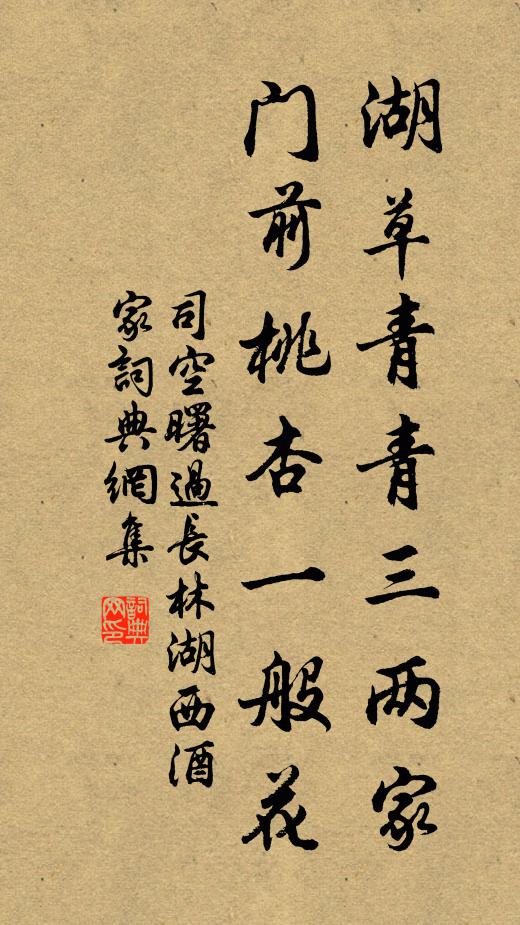 湖草青青三两家
门前桃杏一般花
司空曙過長林湖西酒
家詞典網集
詞典网印